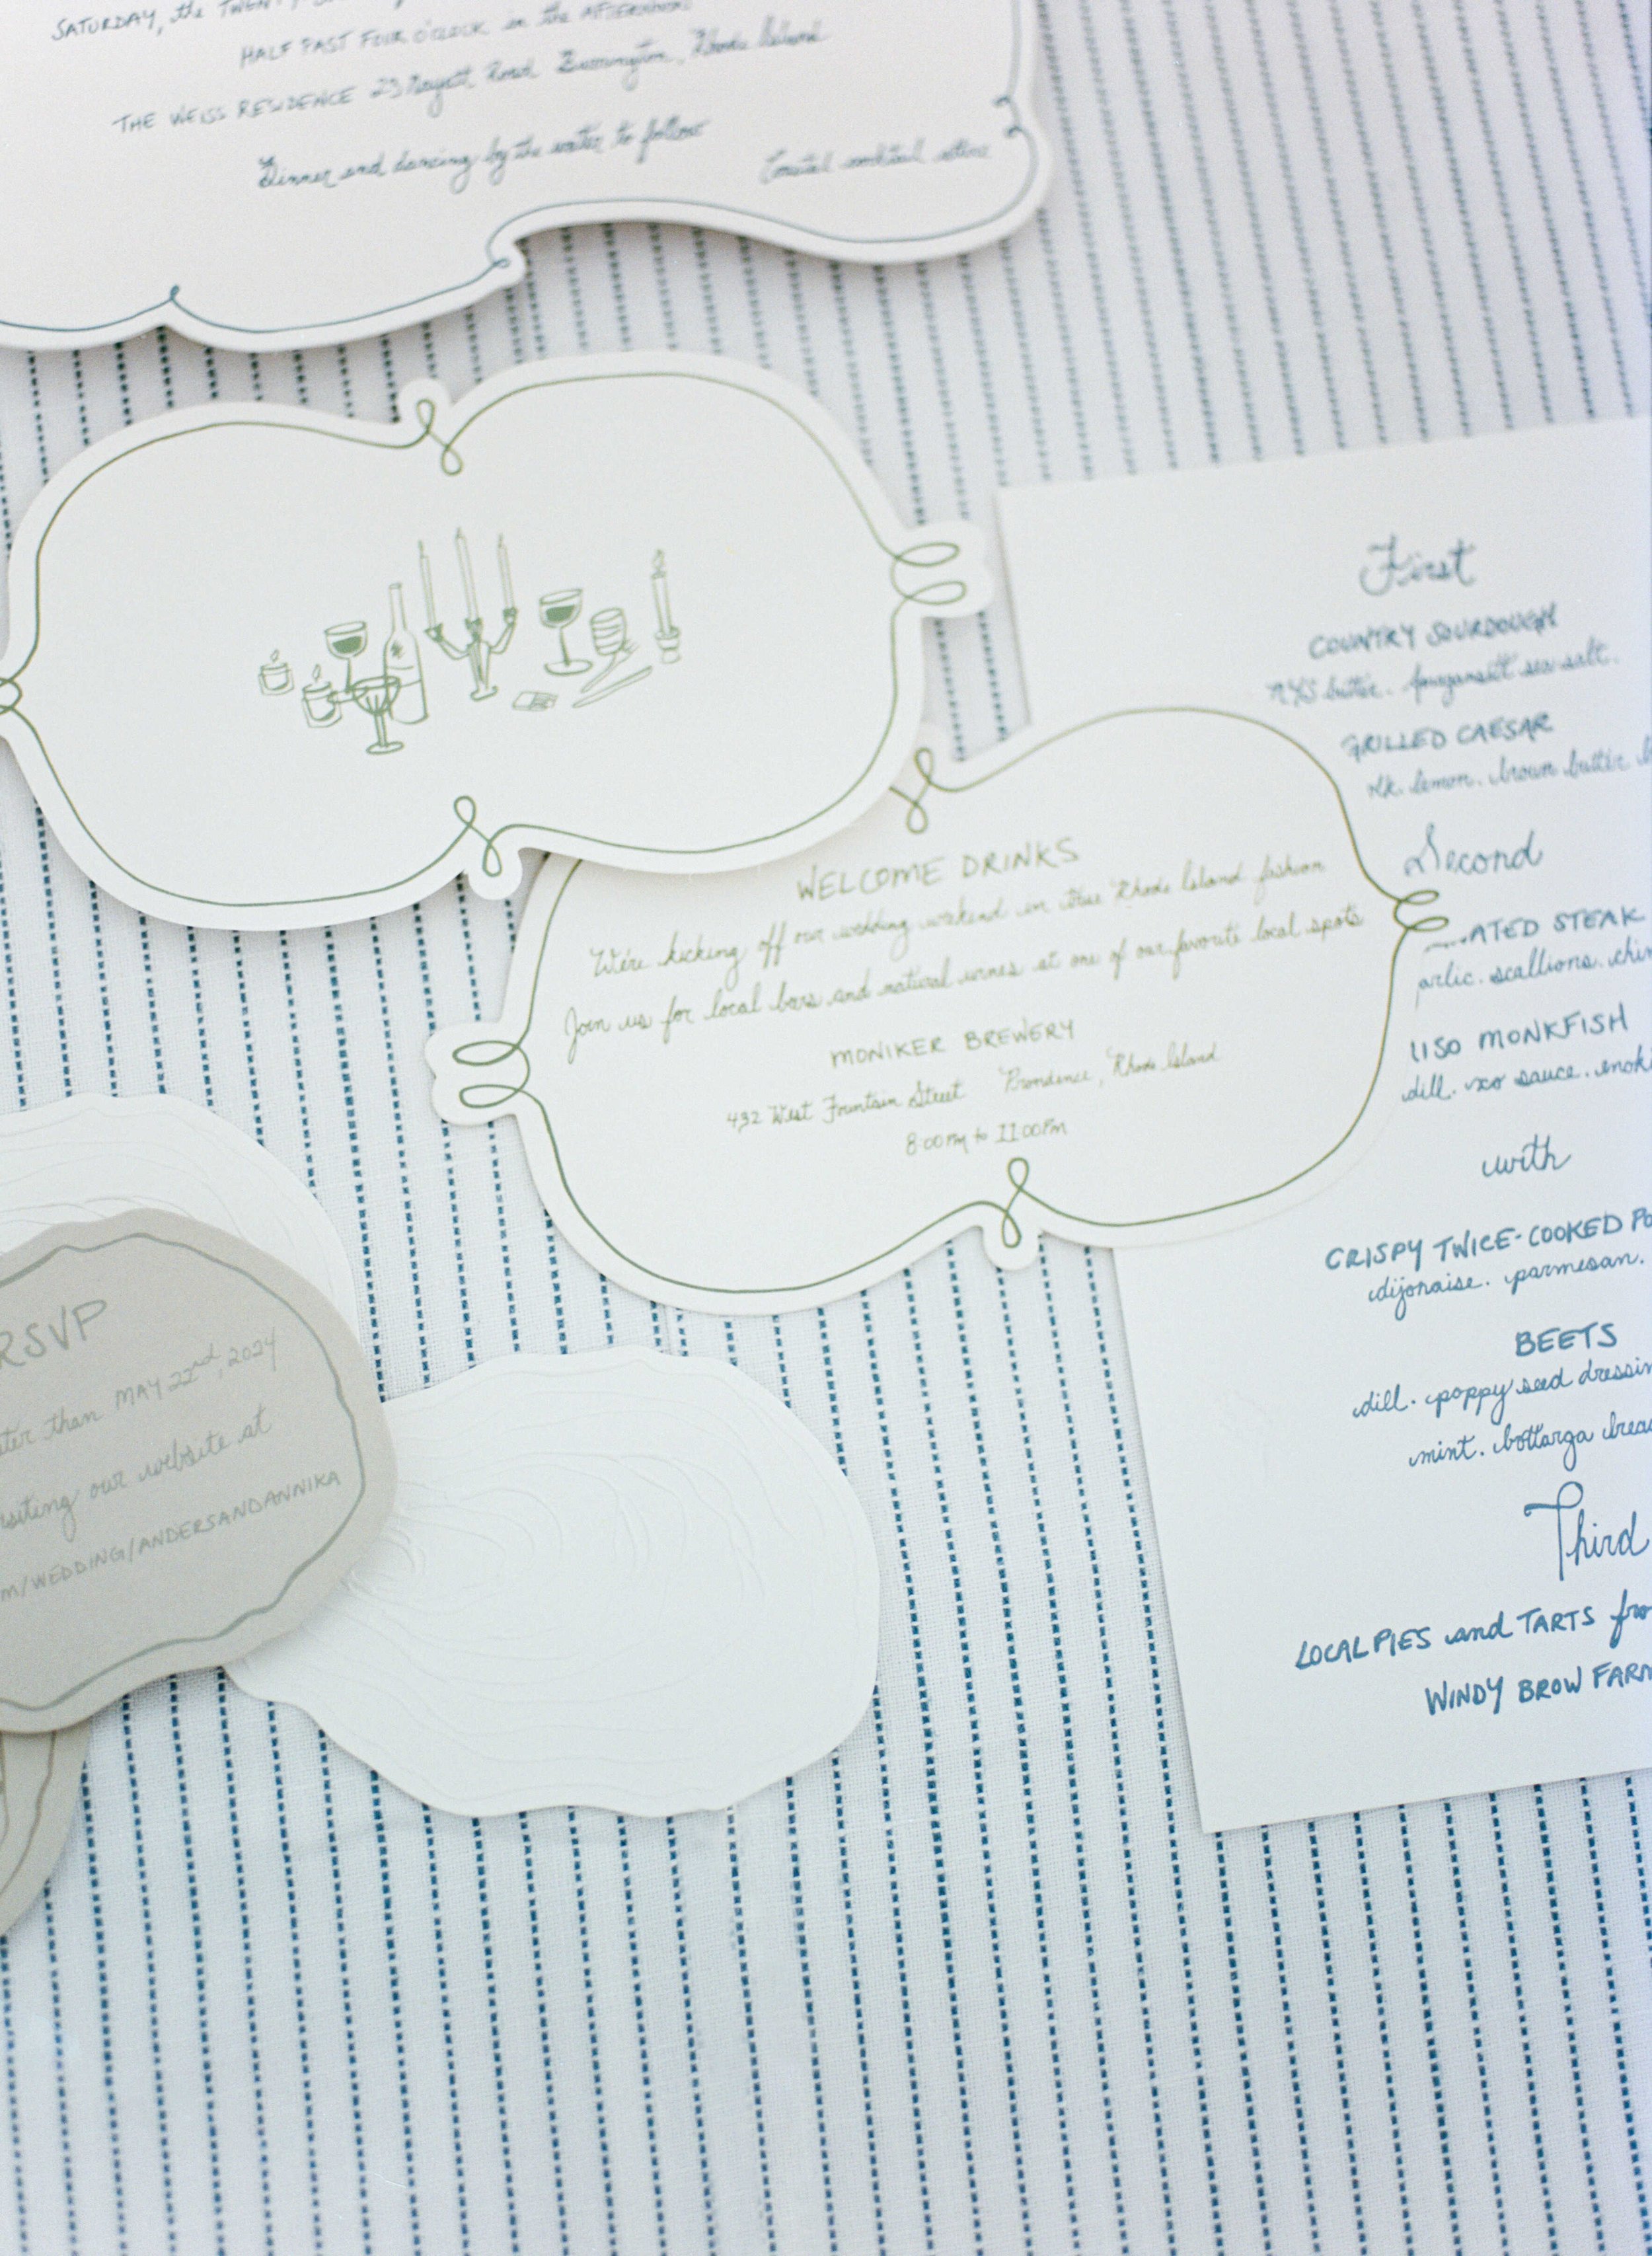 SATURDAY, the
HALF PAST FOUR O'CLOCK in the AFTERNOON
THE WEISS RESIDENCE 23 Nayatt Road Barrington, Rhode Island
Dinner and dancing by the water to follow
Coastal cocktail attire
WELCOME DRINKS
We're kicking off our wedding weekend in true Rhode Island fashion
Join us for local beers and natural wines at one of our favorite local spots
MONIKER BREWERY
432 West Fountain Street Providence, Rhode Island
8:00 PM to 11:00 PM
RSVP
than MAY 22nd, 2024
our website at
/WEDDING/ANDERSANDANNIKA
First
COUNTRY SOURDOUGH
butter. sea salt.
GRILLED CAESAR
lemon. brown butter
Second
STEAK
scallions.
MONKFISH
dill. xo sauce.
with
CRISPY TWICE-COOKED
dijonaise. parmesan.
BEETS
dill. poppy seed
mint. bottarga
Third
LOCAL PIES and TARTS
WINDY BROW